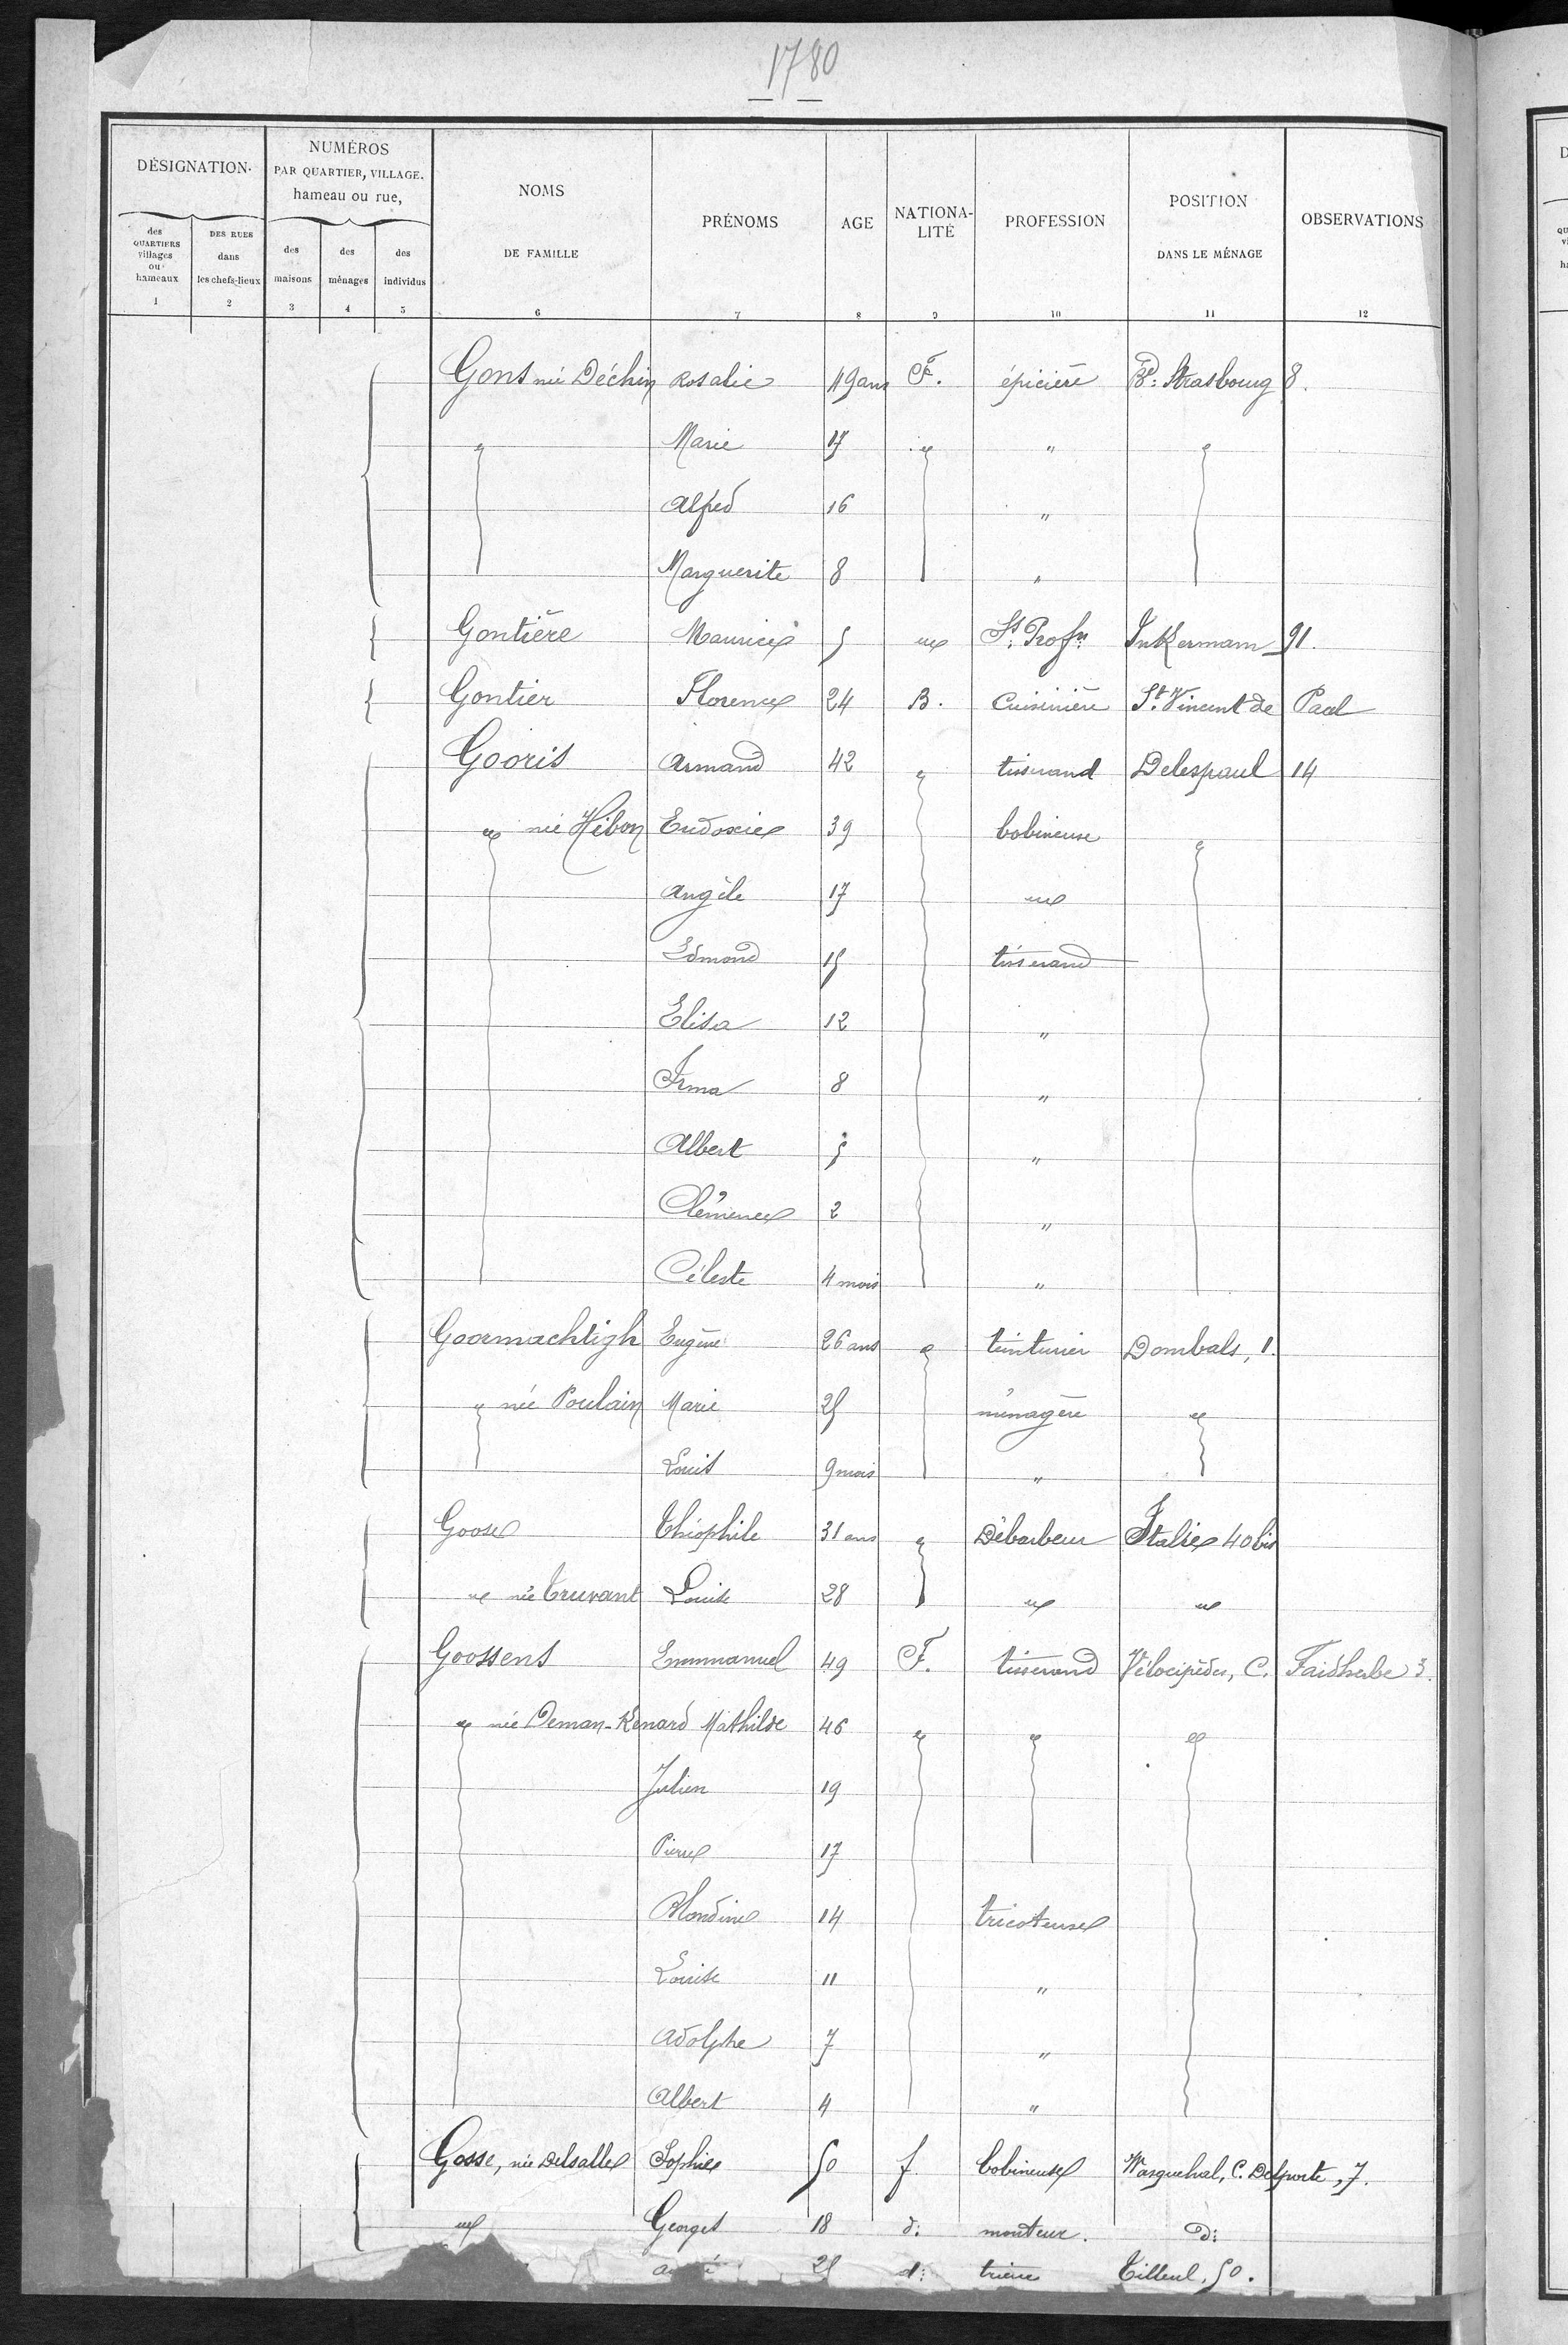 1780
DÉSIGNATION. NUMÉROS PAR QUARTIER, VILLAGE. hameau ou rue, NOMS DE FAMILLE PRÉNOMS AGE NATIONALITÉ PROFESSION POSITION DANS LE MÉNAGE OBSERVATIONS
des QUARTIERS villages ou hameaux DES RUES dans les chefs-lieux des maisons des ménages des individus
1 2 3 4 5 6 7 8 9 10 11 12
Gons née Déchin Rosalie 49 ans F. épicière Bd: Strasbourg 8.
" Marie 17 " " "
Alfred 16 "
Marguerite 8 "
Gontière Maurice 5 " Ss: Profn: Inkermann 91.
Gontier Florence 24 B. Cuisinière St. Vincent de Paul
Gooris Armand 42 " tisserand Delespaul 14
" née Hibon Eudoxie 39 bobineuse "
Angèle 17 "
Edmond 15 tisserand
Elisa 12 "
Irma 8 "
Albert 5 "
Clémence 2 "
Céleste 4 mois "
Goormachtigh Eugène 26 ans " teinturier Dombals, 1.
" née Poulain Marie 25 ménagère "
Louis 9 mois "
Goose Théophile 31 ans " Débarbeur Italie 40 bis
" née Truvant Louise 28 " "
Goossens Emmnanuel 49 F. tisserand Vélocipèdes, C. Faidherbe 3.
" née Deman-Renard Mathilde 46 " " "
Julien 19
Pierre 17
Blondine 14 tricoteuse
Louise 11 "
Adolphe 7 "
Albert 4 "
Gosse, née Delsalle Sophie 50 f. bobineuse Wasquehal, C. Delporte, 7.
" Georges 18 d: monteur. D:
25 d: trieur Tilleul, 50.